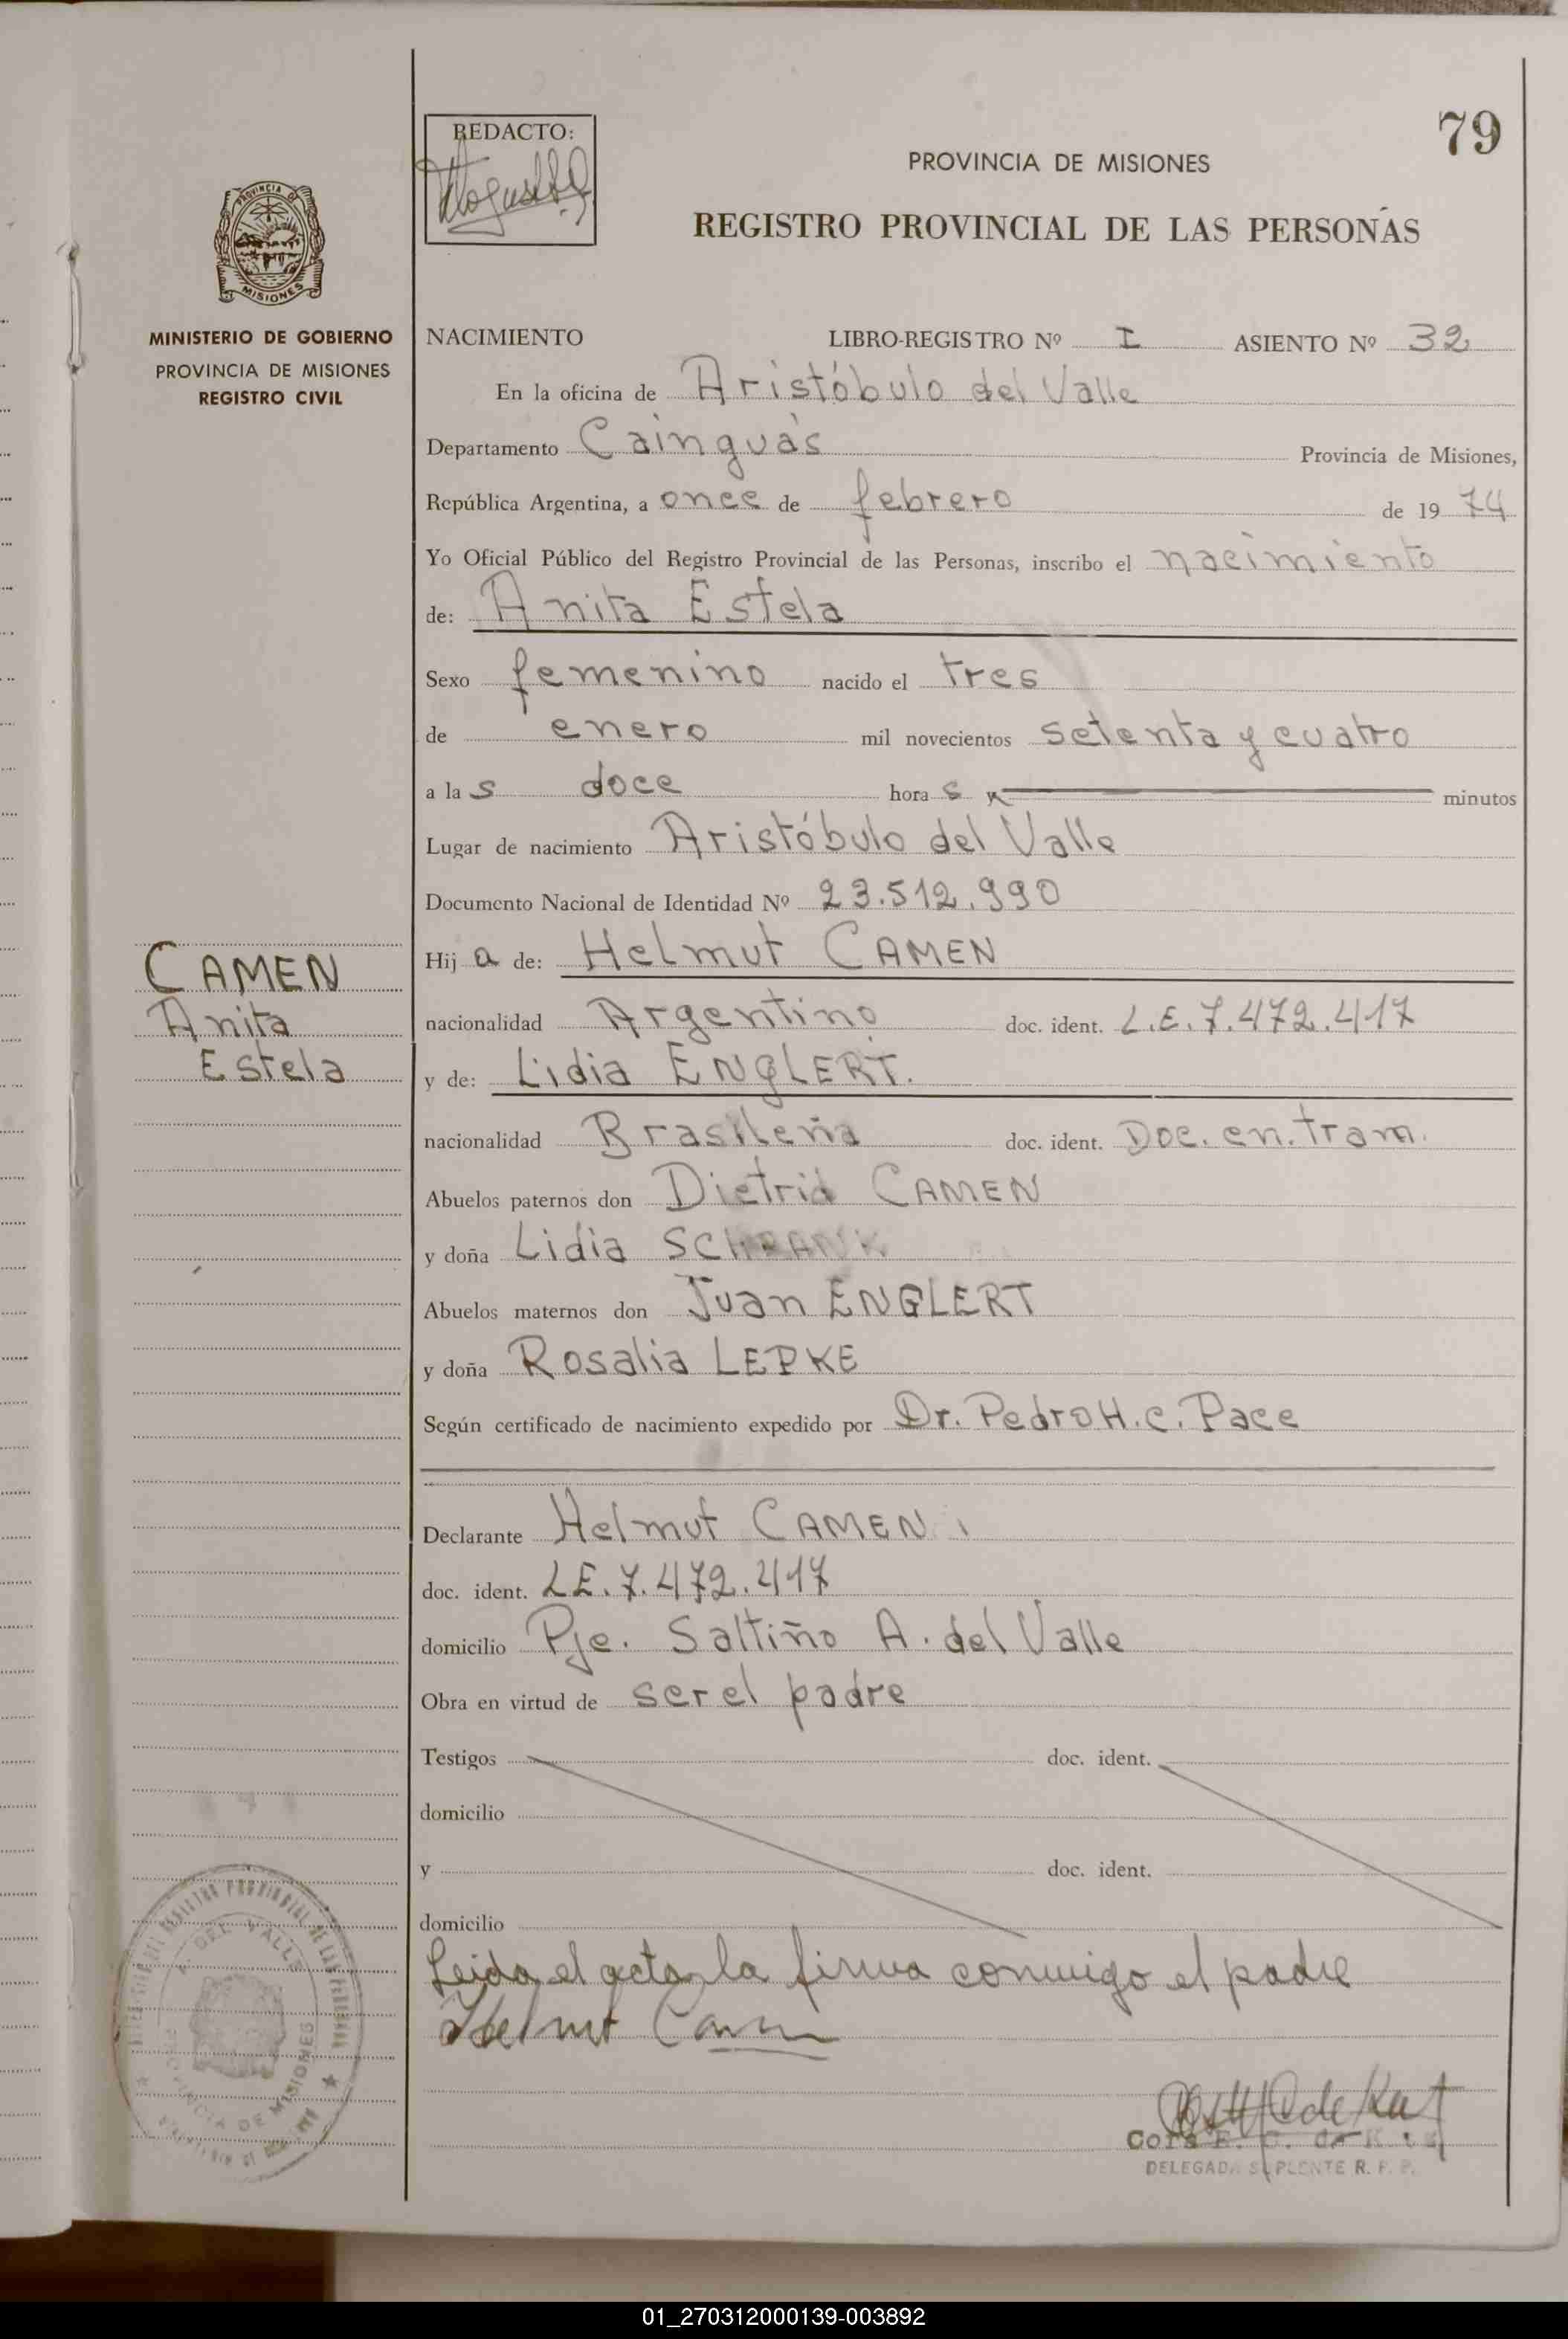 79
REDACTO:
PROVINCIA DE MISIONES
REGISTRO PROVINCIAL DE LAS PERSONAS
PROVINCIA DE
MISIONES
MINISTERIO DE GOBIERNO
PROVINCIA DE MISIONES
REGISTRO CIVIL
NACIMIENTO LIBRO-REGISTRO Nº I ASIENTO Nº 32
En la oficina de Aristóbulo del Valle
Departamento Cainguás Provincia de Misiones,
República Argentina, a once de febrero de 1974
Yo Oficial Público del Registro Provincial de las Personas, inscribo el nacimiento
de: Anita Estela
Sexo femenino nacido el tres
de enero mil novecientos setenta y cuatro
a las doce horas minutos
Lugar de nacimiento Aristóbulo del Valle
Documento Nacional de Identidad Nº 23.512.990
CAMEN
Anita
Estela
Hija de: Helmut CAMEN
nacionalidad Argentino doc. ident. L.E.7.472.417
y de: Lidia ENGLERT.
nacionalidad Brasileña doc. ident. Doc. en. tram.
Abuelos paternos don Dietrid CAMEN
y doña Lidia SCHRANK
Abuelos maternos don Juan ENGLERT
y doña Rosalia LEPKE
Según certificado de nacimiento expedido por Dr. Pedro H. C. Pace
Declarante Helmut CAMEN
doc. ident. LE.7.472.417
domicilio Pje. Saltiño A. del Valle
Obra en virtud de ser el padre
Testigos doc. ident.
domicilio
y doc. ident.
domicilio
Leida el acta, la firma conmigo el padre
Helmut Camen
REGISTRO PROVINCIAL DE LAS PERSONAS
A. DEL VALLE
PROVINCIA DE MISIONES
Cora E. de
DELEGADA SUPLENTE R. P. P.
01_270312000139-003892